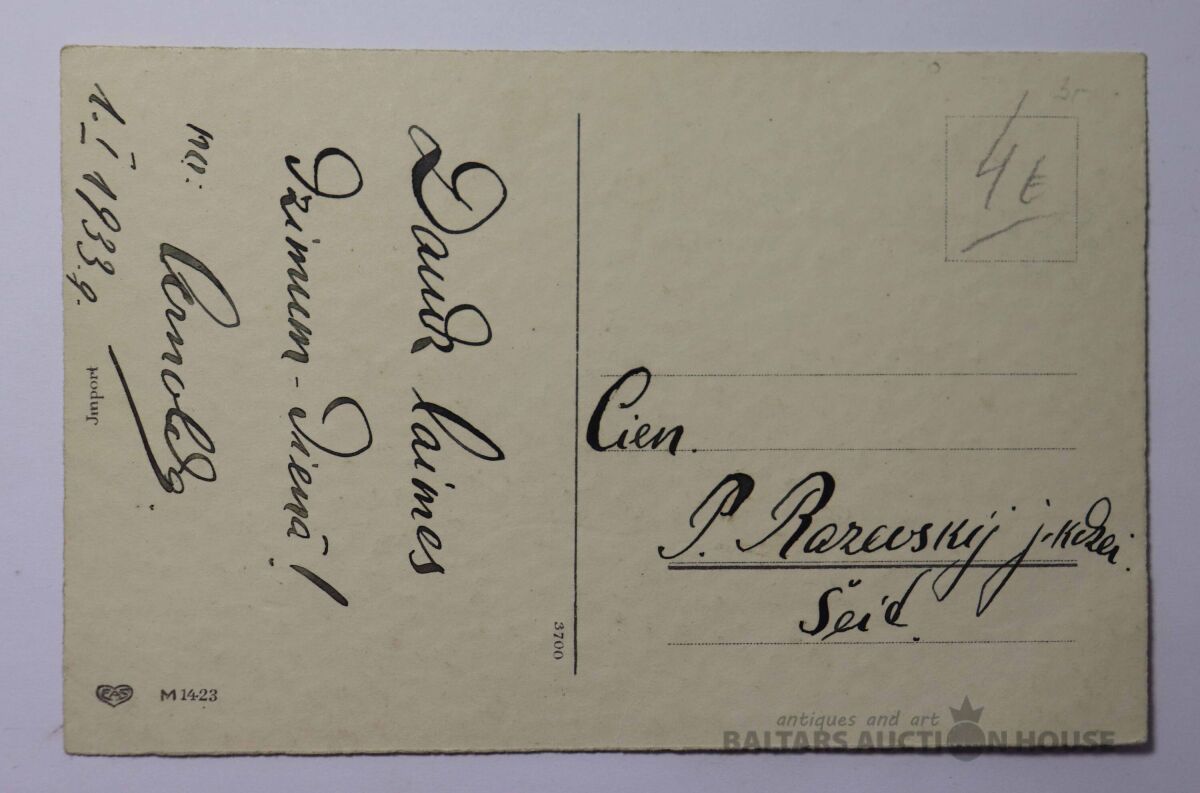 Daudz laimes
Dzimum-dienā!
no:
Arnolda
1. I 1933.g.
Import
3700
EAS
M 14-23
3-
4 €
Cien.
P. Razevskij j-kdzei.
Šeit.
antiques and art
BALTARS AUCTION HOUSE